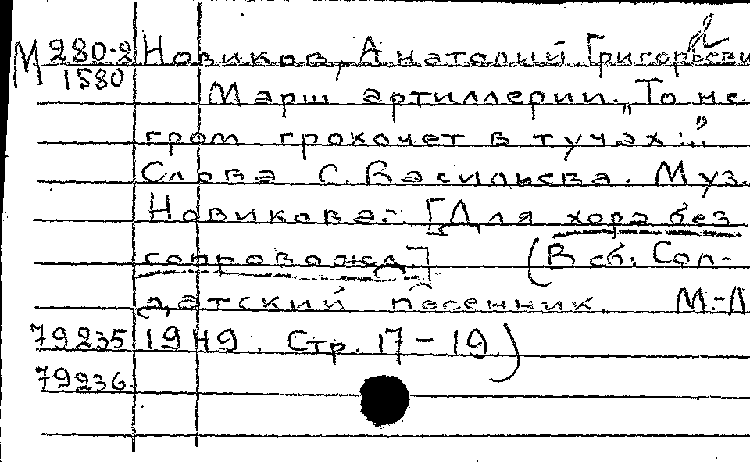 М 280-2 Новиков, Анатолий Григорьеви
1580 Марш артиллерии. „То не
гром грохочет в тучах..."
Слова С. Васильева. Муз.
Новикова. [Для хора без
сопровожд.] (В сб. Сол-
датский песенник. М.-Л
79235 1949. Стр. 17-19)
79236